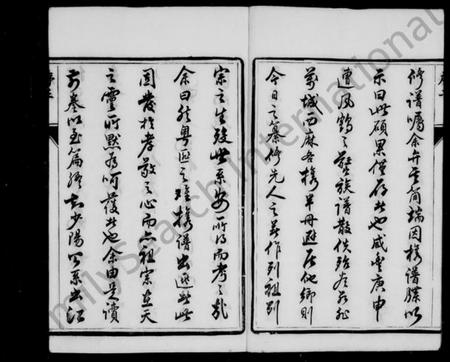 修譜囑余弁其簡端因攜譜牒以
示曰此碩果僅存也咸豐庚申
遭風鶴之警族譜散佚殆盡非
萬城西麻吾攜單冊避居他鄉則
今日之纂修先人之著作列祖列
宗之生歿世系安所得而考之哉
余曰於粵匪之難攜譜出避此
固發於孝敬之心而亦祖宗在天
之靈所默為呵護也余由是讀
前卷以至篇終知少陽公系出江
FamilySearch International